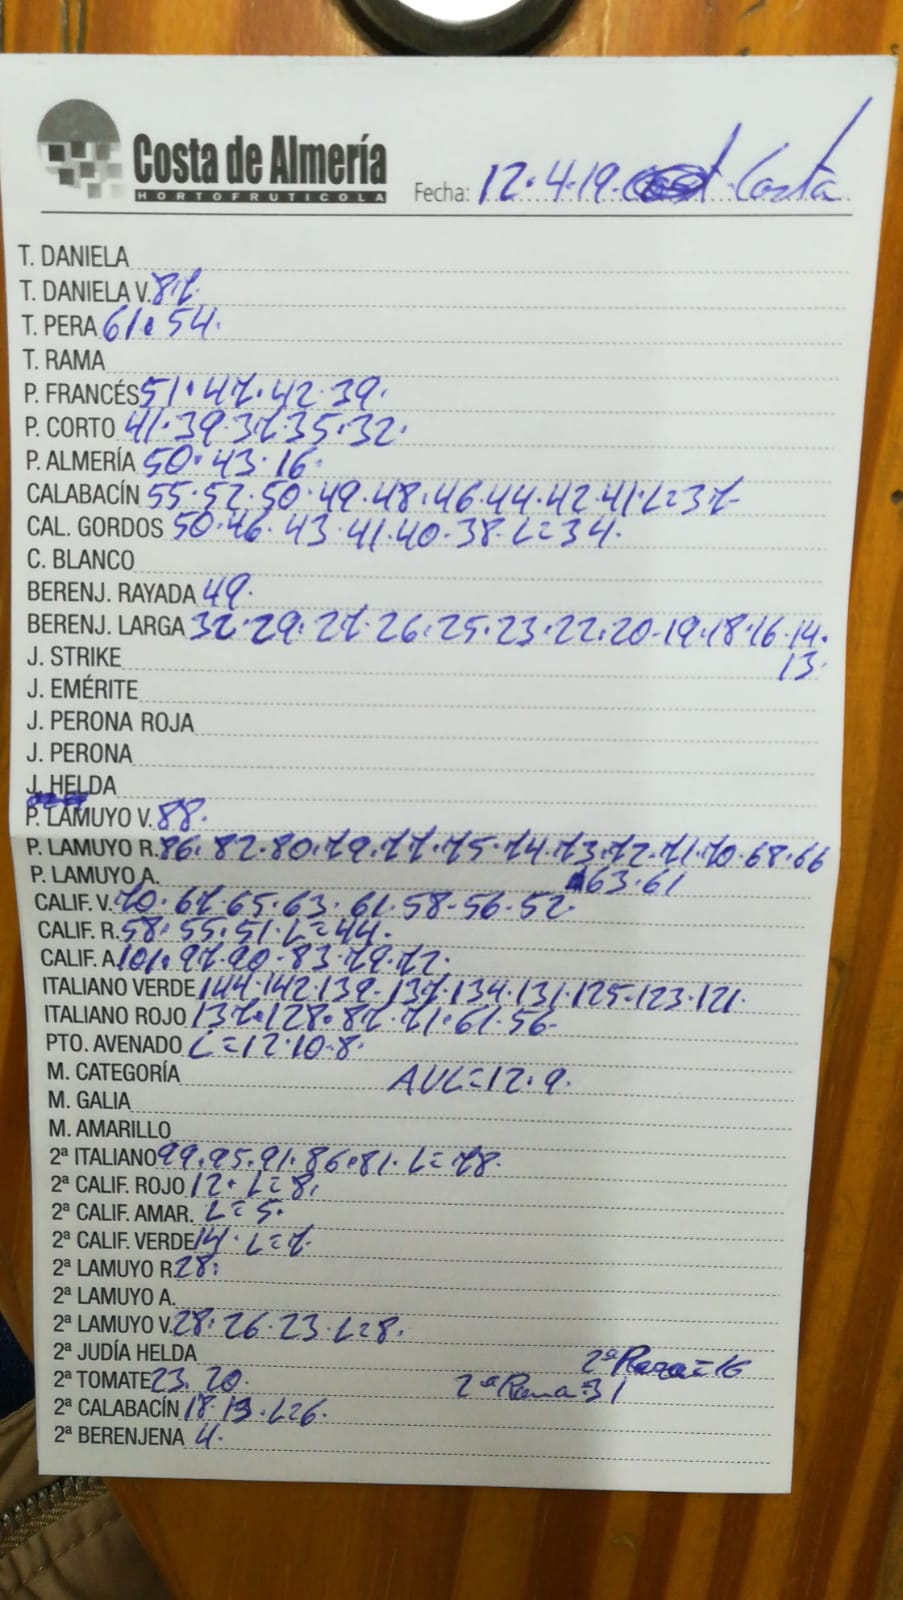 Costa de Almería
HORTOFRUTICOLA
Fecha: 12.4.19. Costa
T. DANIELA
T. DANIELA V. 87.
T. PERA 61. 54.
T. RAMA
P. FRANCÉS 51. 47. 42. 39.
P. CORTO 41. 39. 37. 35. 32.
P. ALMERÍA 50. 43. 16.
CALABACÍN 55. 52. 50. 49. 48. 46. 44. 42. 41. L=37.
CAL. GORDOS 50. 46. 43. 41. 40. 38. L=34.
C. BLANCO
BERENJ. RAYADA 49.
BERENJ. LARGA 32. 29. 27. 26. 25. 23. 22. 20. 19. 18. 16. 14.
J. STRIKE 13.
J. EMÉRITE
J. PERONA ROJA
J. PERONA
J. HELDA
P. LAMUYO V. 88.
P. LAMUYO R. 86. 82. 80. 79. 77. 75. 74. 73. 72. 71. 70. 68. 66
P. LAMUYO A. 63. 61
CALIF. V. 70. 67. 65. 63. 61. 58. 56. 52.
CALIF. R. 58. 55. 51. L=44.
CALIF. A 101. 97. 90. 83. 79. 72.
ITALIANO VERDE 144. 142. 139. 137. 134. 131. 125. 123. 121.
ITALIANO ROJO 137. 128. 87. 71. 61. 56.
PTO. AVENADO L=12. 10. 8.
M. CATEGORÍA AVL=12. 9.
M. GALIA
M. AMARILLO
2ª ITALIANO 99. 95. 91. 86. 81. L=78.
2ª CALIF. ROJO 12. L=8.
2ª CALIF. AMAR. L=5.
2ª CALIF. VERDE 14. L=7.
2ª LAMUYO R. 28.
2ª LAMUYO A.
2ª LAMUYO V. 28. 26. 23. L=8.
2ª JUDÍA HELDA 2ª Pera=16
2ª TOMATE 23. 20. 2ª Rama=31
2ª CALABACÍN 18. 13. L=6.
2ª BERENJENA 4.